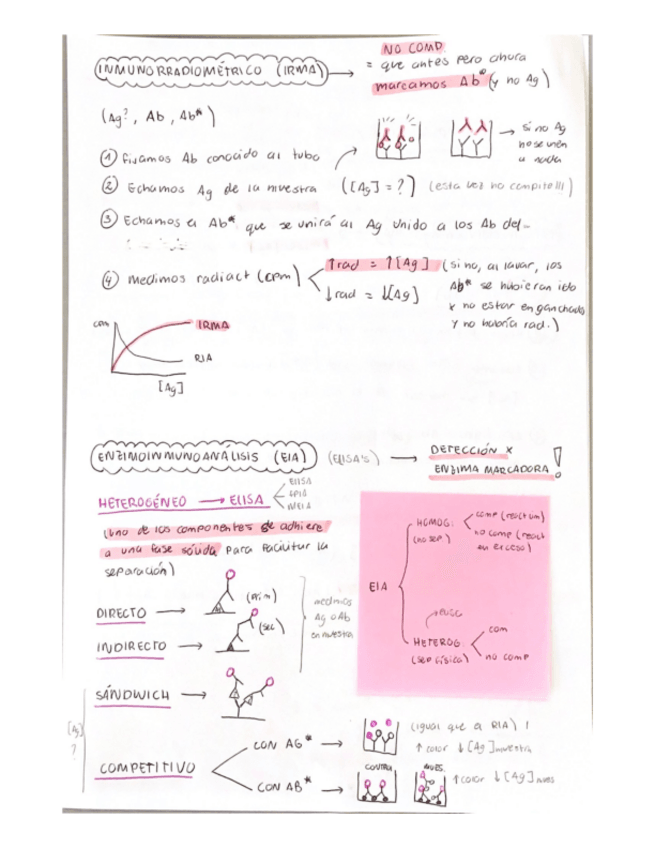 NO COMP.
INMUNORRADIOMÉTRICO (IRMA) → = que antes pero ahora
marcamos Ab* (y no Ag)
(Ag?, Ab, Ab*)
→ si no Ag
no se unen
a nada
① Fijamos Ab conocido al tubo
② Echamos Ag de la muestra ([Ag] = ?) (esta vez no compite!!!)
③ Echamos el Ab* que se unirá al Ag unido a los Ab del
④ Medimos radiact (cpm)
↑rad = ↑[Ag] (si no, al lavar, los
Ab* se hubieran ido
x no estar enganchados
y no habría rad.)
↓rad = ↓[Ag]
IRMA
RIA
[Ag]
ENZIMOINMUNOANÁLISIS (EIA) (ELISA's) → DETECCIÓN x
ENZIMA MARCADORA!
HETEROGÉNEO → ELISA
ELISA
(uno de los componentes se adhiere
a una fase sólida para facilitar la
separación)
DIRECTO → (prim)
INDIRECTO → (sec)
medimos
Ag o Ab
en muestra
SÁNDWICH →
[Ag]
?
COMPETITIVO
CON AG* → (igual que a RIA) !
↑ color ↓ [Ag] muestra
CON AB* →
CONTROL
MUES.
↑ color ↓ [Ag] mues
EIA
HOMOG.
(no sep.)
comp (react lim)
no comp (react
en exceso)
HETEROG.
(sep física)
com
no comp